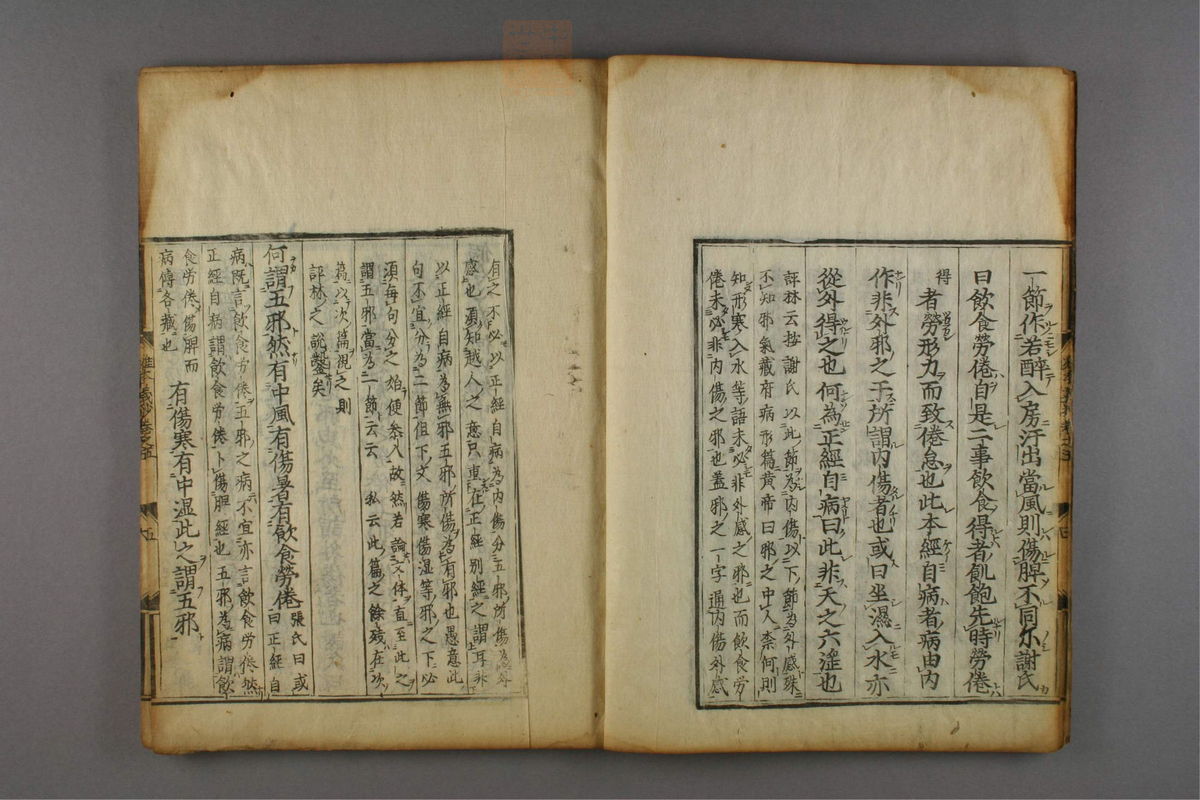 一節作若醉入房汗出當風則傷脾不同尓謝氏
曰飲食勞倦自是二事飲食得者飢飽先時勞倦
得者勞形力而致倦怠也此本經自病者病由內
作非外邪之干所謂內傷者也或曰坐濕入水亦
從外得之也何為正經自病曰此非天之六淫也
評林云按謝氏以此節為內傷以下節為外感殊
不知邪氣藏府病形篇黃帝曰邪之中人柰何則
知形寒入水等語未必非外感之邪也而飲食勞
倦未必非內傷之邪也蓋邪之一字通內傷外感
有之不必以正經自病為內傷分五邪所傷為外
感也須知越人之意只重在正經別經之謂耳非
以正經自病為無五邪所傷為有邪也愚意此
句不宜分為二節但下文傷寒傷湿等邪之下必
須每句分之始便叅入故然若論文体直至此之
謂五邪當為一節云云 私云此篇之餘殘在次
篇以次篇視之則
評林之說鑿矣
何謂五邪然有中風有傷暑有飲食勞倦 張氏曰或曰正經自
病既言飲食勞倦五邪之病不宜亦言飲食勞倦然
正經自病謂飲食勞倦卜傷脾經也五邪為病謂飲
食勞倦傷脾而
病傳各藏也
有傷寒有中湿此之謂五邪